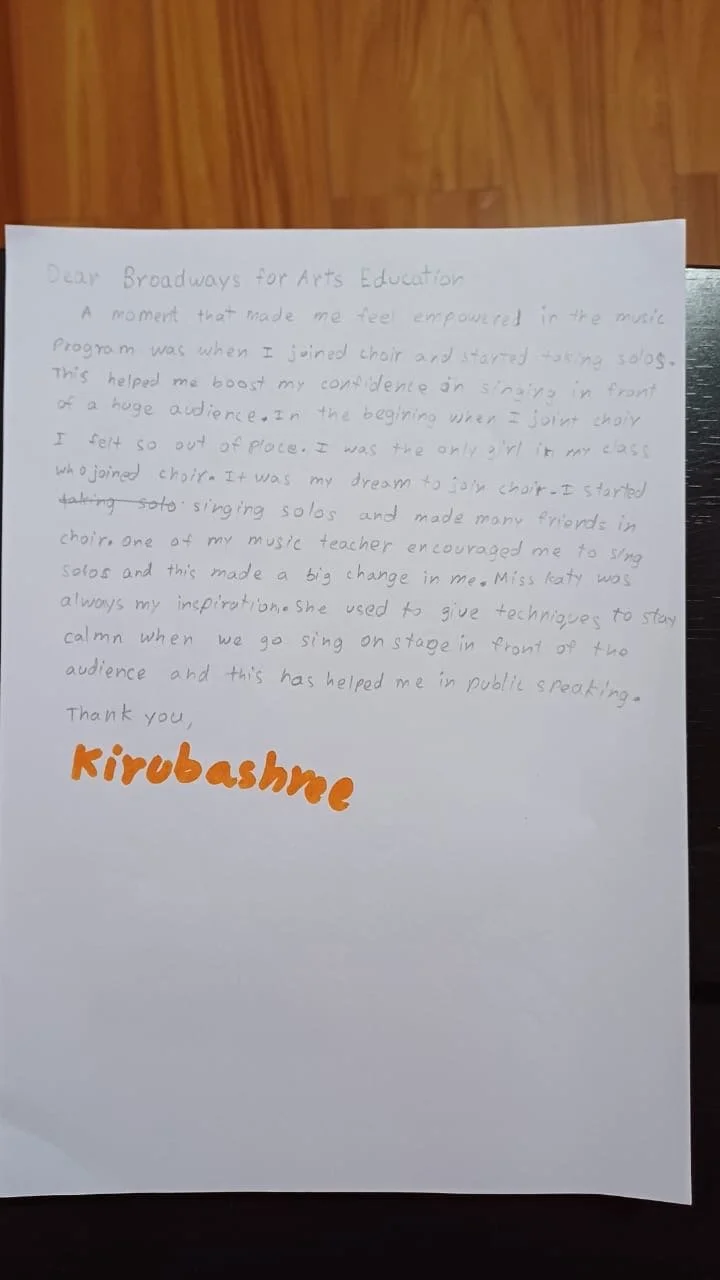 Dear Broadways for Arts Education
A moment that made me feel empowered in the music
Program was when I joined choir and started taking solos.
This helped me boost my confidence on singing in front
of a huge audience. In the begining when I joint choir
I felt so out of place. I was the only girl in my class
who joined choir. It was my dream to join choir. I started
taking solo singing solos and made many friends in
choir. One of my music teacher encouraged me to sing
solos and this made a big change in me. Miss Katy was
always my inspiration. She used to give techniques to stay
calmn when we go sing on stage in front of the
audience and this has helped me in public speaking.
Thank you,
Kirubashree